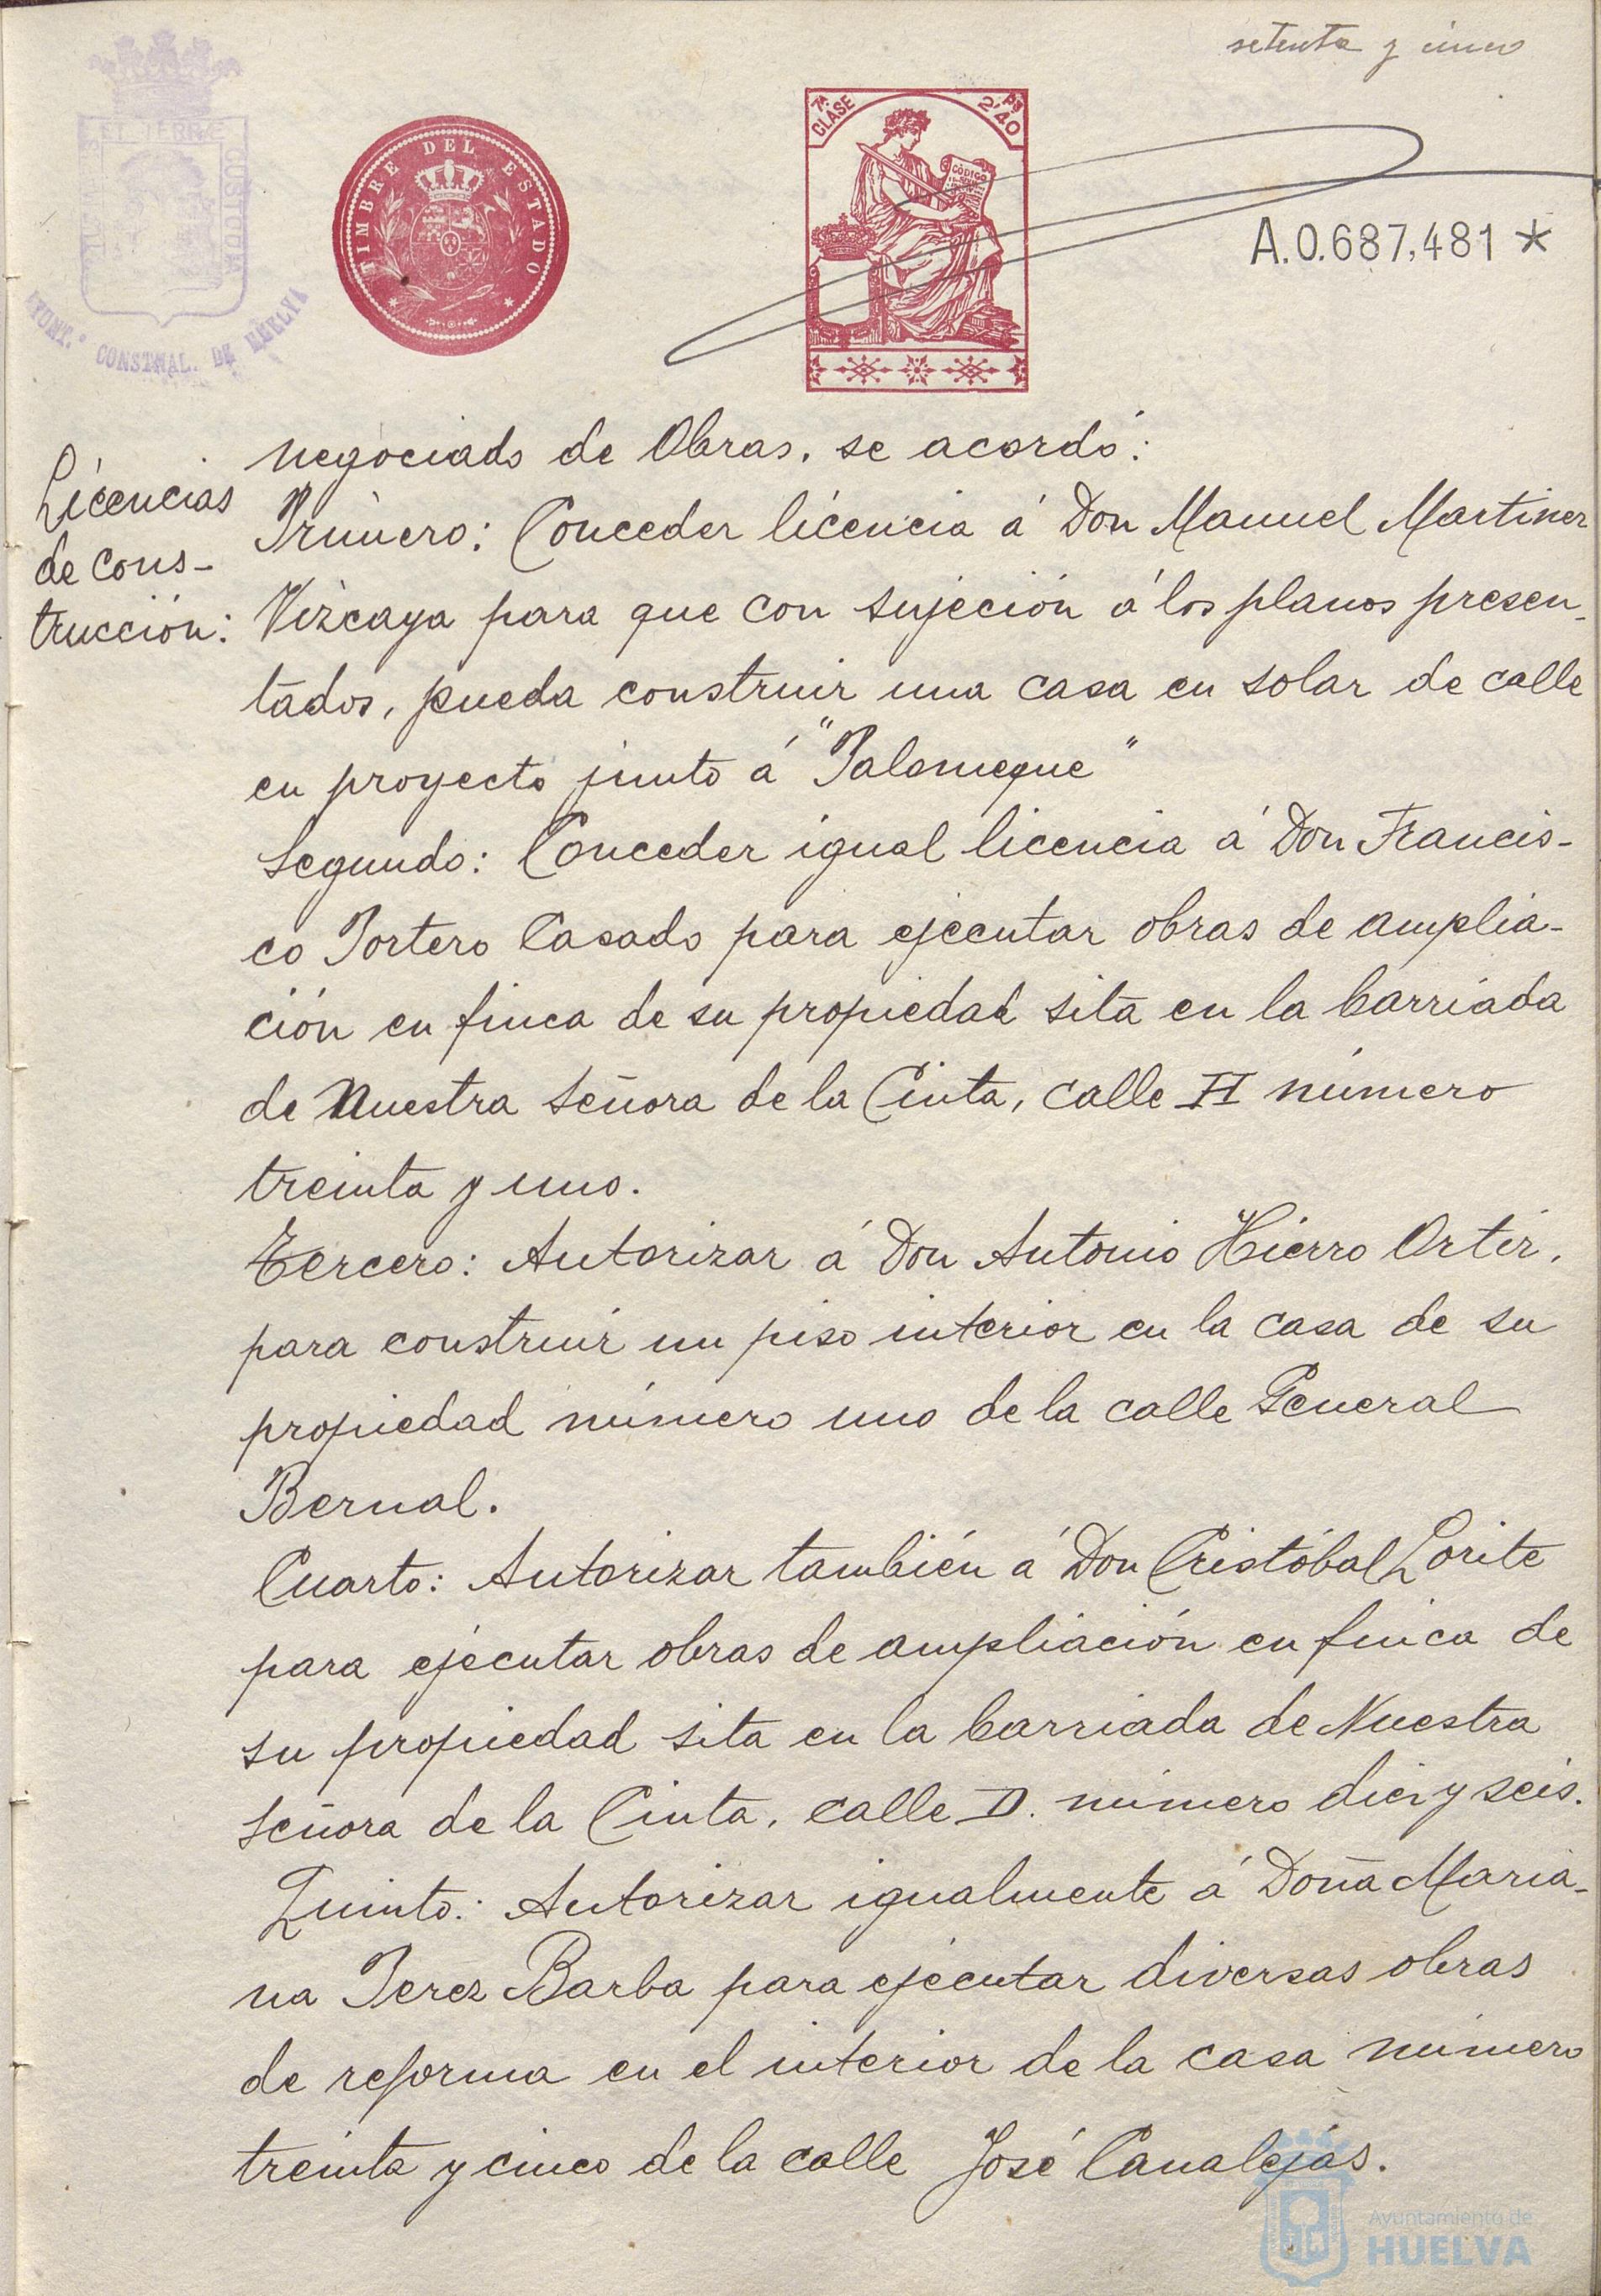 setenta y cinco
PORTUS MARIS ET TERRÆ CUSTODIA
AYUNT.º CONSTNAL. DE HUELVA
TIMBRE DEL ESTADO
7ª CLASE
2'40 Ps
CÓDIGO
A.0.687,481 *
negociado de Obras, se acordó:
Licencias
de cons-
trucción:
Primero: Conceder licencia á Don Manuel Martinez
Vizcaya para que con sujeción á los planos presen-
tados, pueda construir una casa en solar de calle
en proyecto junto á "Palomeque"
Segundo: Conceder igual licencia á Don Francis-
co Portero Casado para ejecutar obras de amplia-
ción en finca de su propiedad sita en la barriada
de Nuestra Señora de la Cinta, calle H número
treinta y uno.
Tercero: Autorizar á Don Antonio Hierro Ortiz,
para construir un piso interior en la casa de su
propiedad número uno de la calle General
Bernal.
Cuarto: Autorizar también á Don Cristóbal Lorite
para ejecutar obras de ampliación en finca de
su propiedad sita en la barriada de Nuestra
Señora de la Cinta, calle D. número diez y seis.
Quinto: Autorizar igualmente á Doña Maria-
na Perez Barba para ejecutar diversas obras
de reforma en el interior de la casa número
treinta y cinco de la calle José Canalejas.
Ayuntamiento de
HUELVA